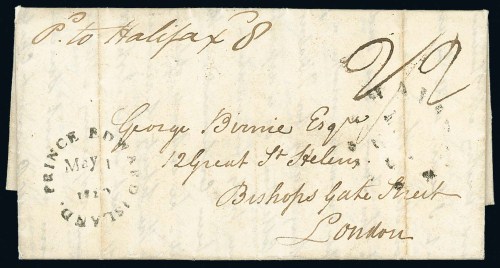 Pd. to Halifax 8
2/2
PRINCE EDWARD ISLAND.
May 1
George Birnie Esqr.
12 Great St Helens
Bishops Gate Street
London